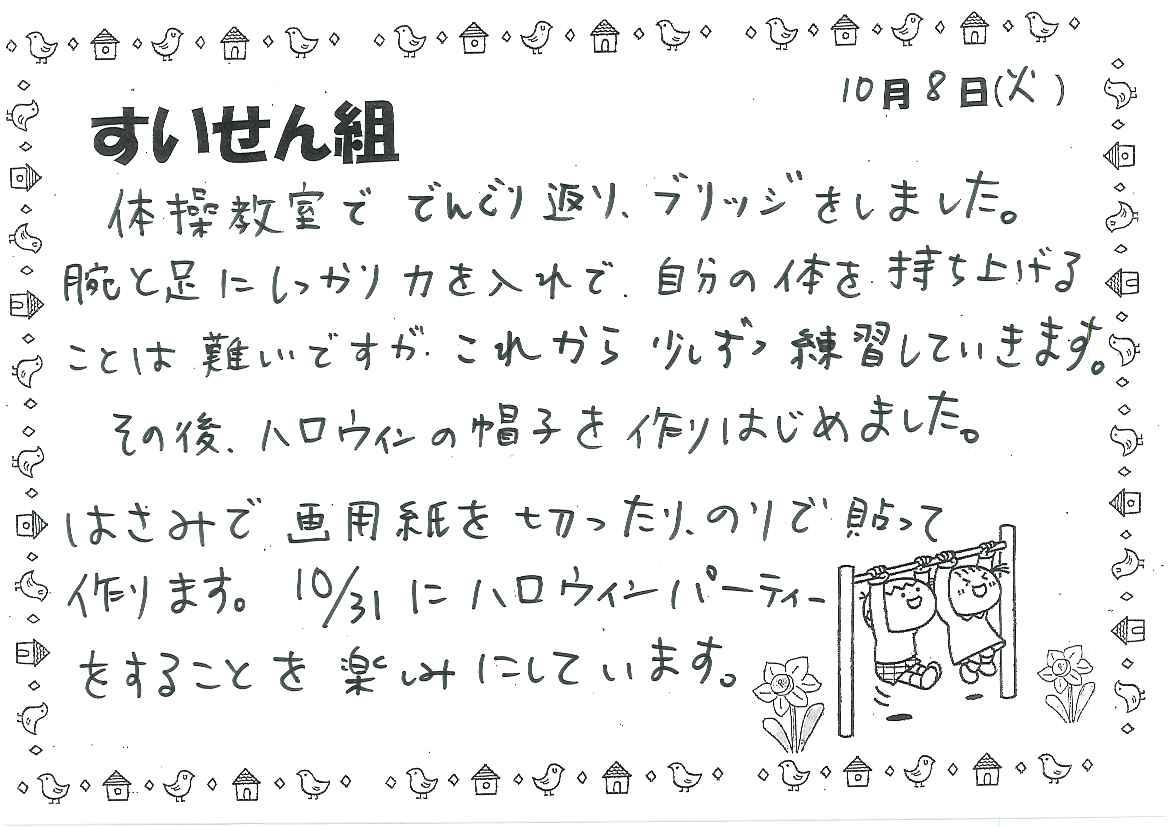 10月8日(火)
すいせん組
体操教室で でんぐり返り、ブリッジをしました。
腕と足にしっかり力を入れて、自分の体を持ち上げる
ことは難しいですが、これから少しずつ練習していきます。
その後、ハロウィンの帽子を作りはじめました。
はさみで画用紙を切ったり、のりで貼って
作ります。10/31にハロウィンパーティー
をすることを楽しみにしています。